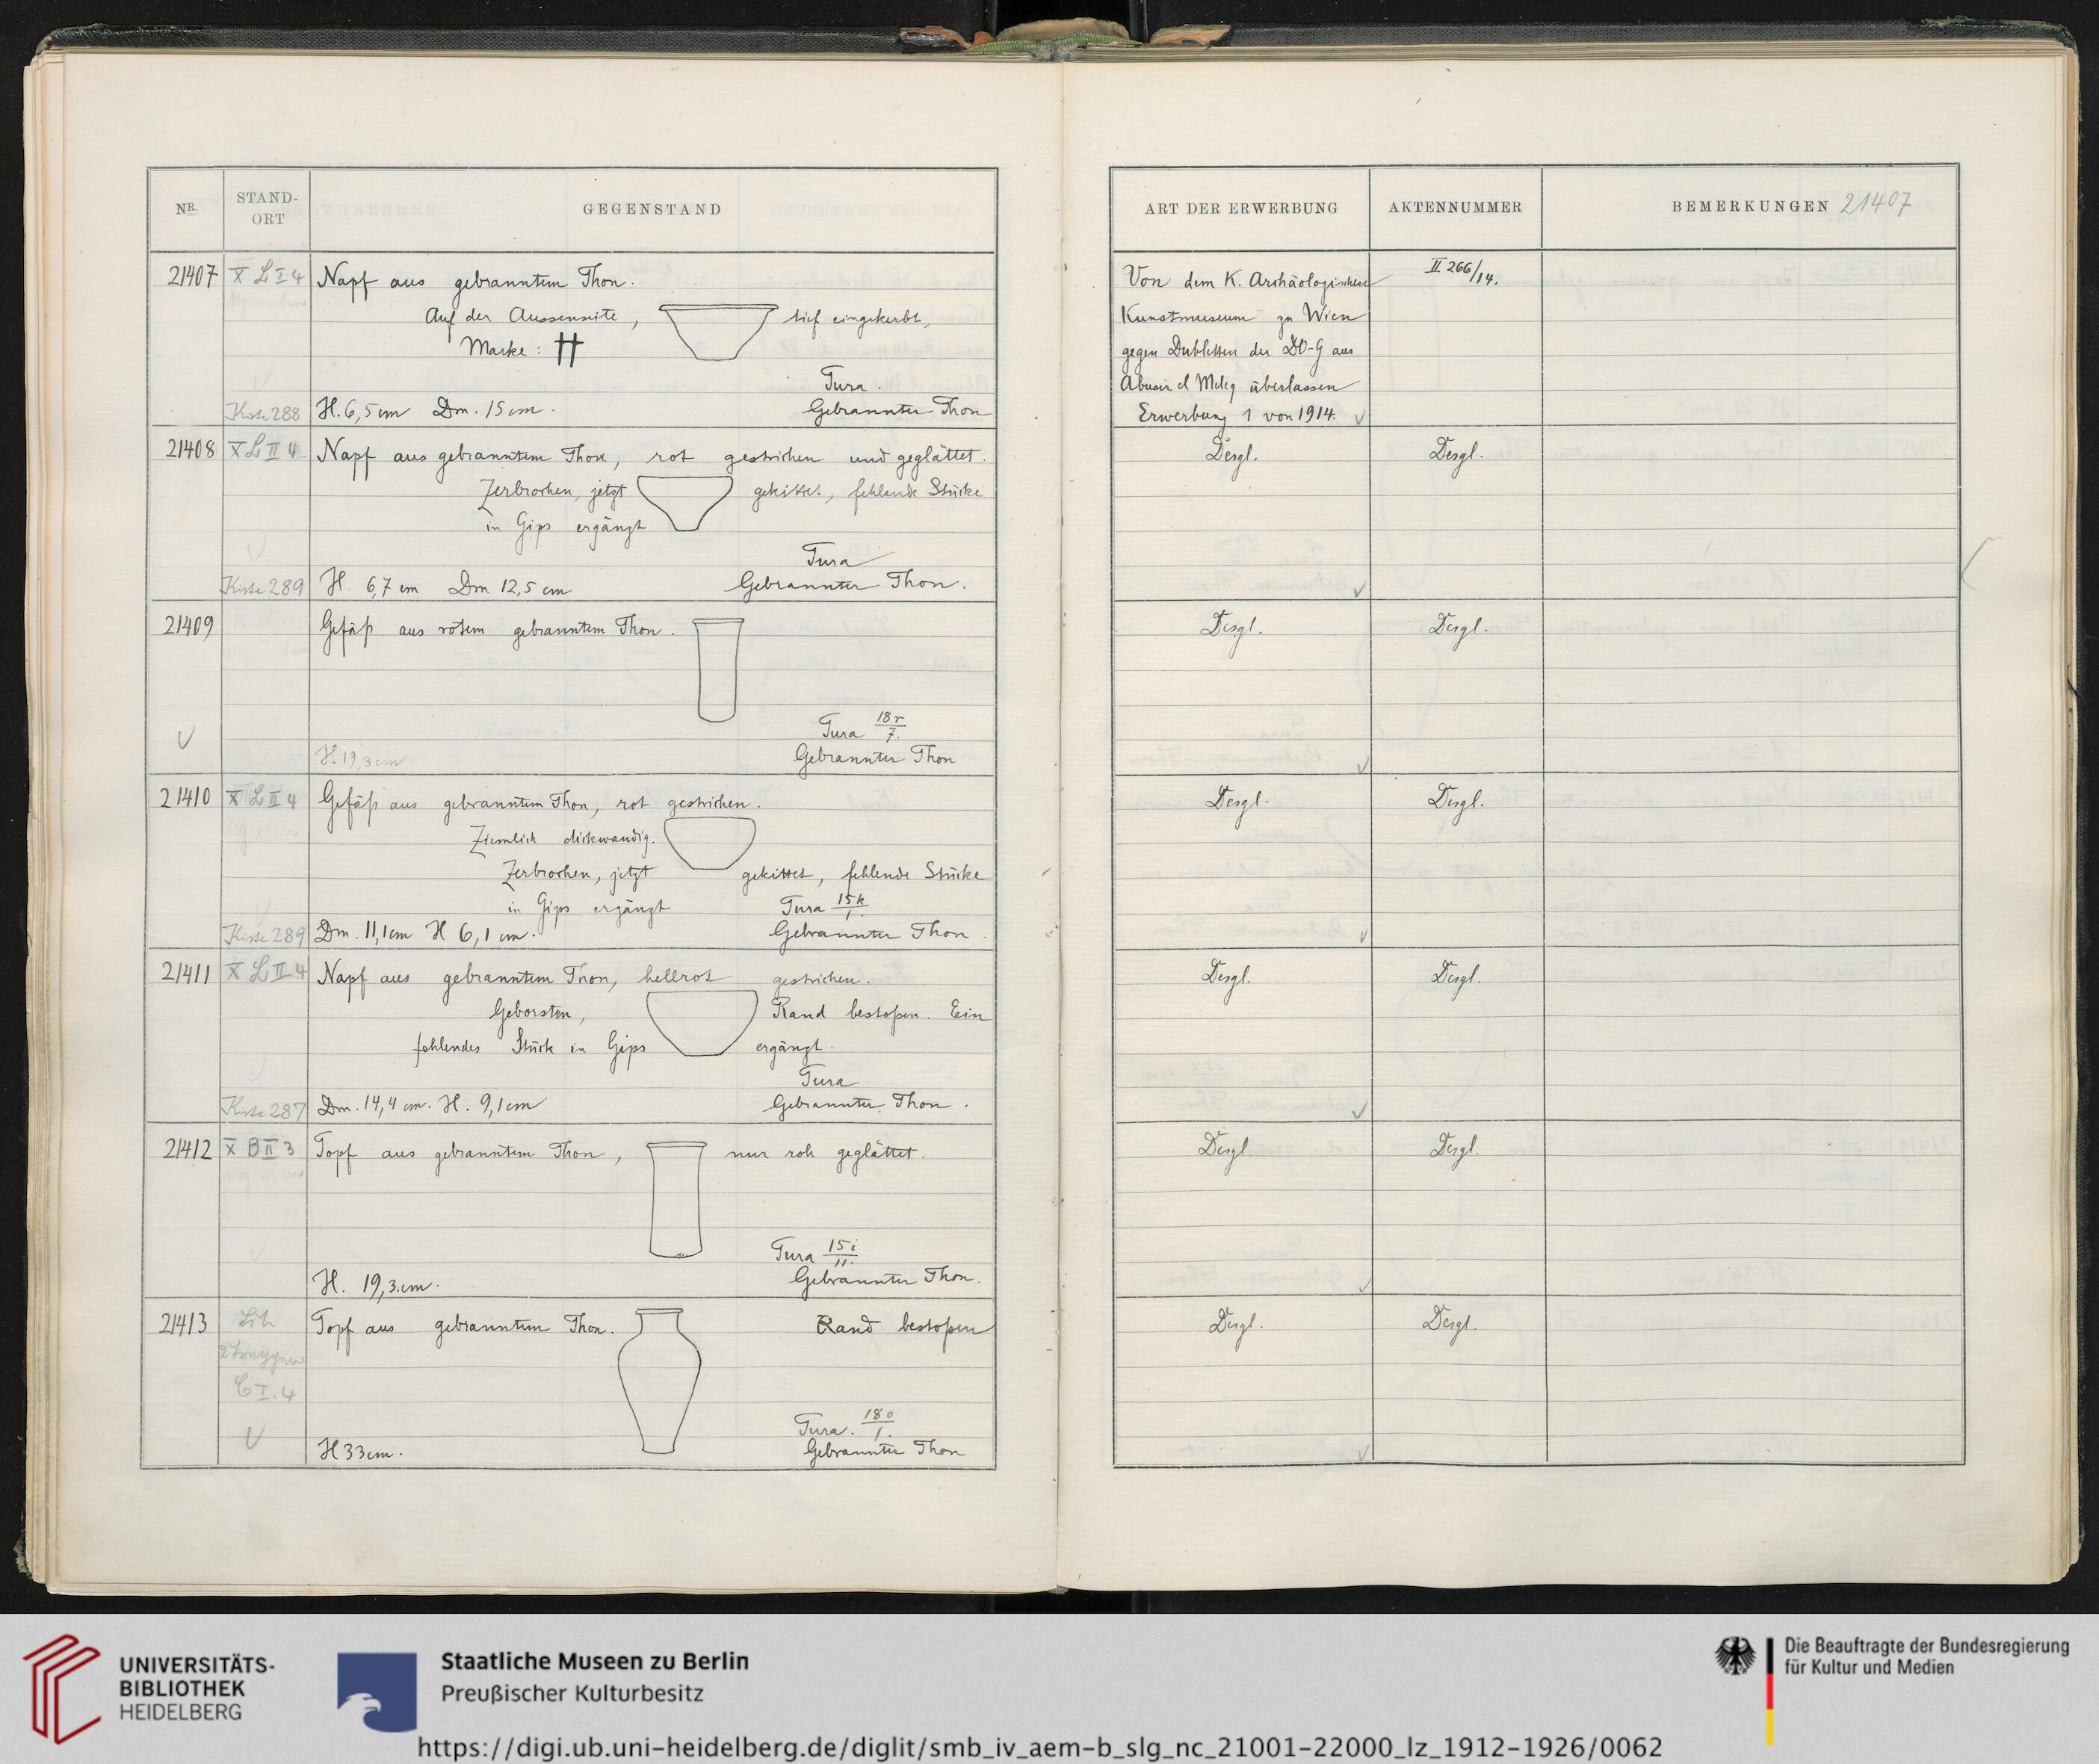 NR.
STAND-
ORT
GEGENSTAND
21407
X L I 4
Napf aus gebranntem Thon.
Auf der Aussenseite, tief eingekerbt,
Marke: ††
Tura.
Kiste 288
H. 6,5 cm Dm. 15 cm.
Gebrannter Thon
21408
X L II 4
Napf aus gebranntem Thon, rot gestrichen und geglättet.
Zerbrochen, jetzt gekittet, fehlende Stücke
in Gips ergänzt
Tura
Kiste 289
H. 6,7 cm Dm 12,5 cm
Gebrannter Thon.
21409
Gefäß aus rotem gebranntem Thon.
Tura 18r/7.
H. 19,3 cm
Gebrannter Thon
21410
X L II 4
Gefäß aus gebranntem Thon, rot gestrichen.
Ziemlich dickwandig.
Zerbrochen, jetzt gekittet, fehlende Stücke
in Gips ergänzt
Tura 15k/1.
Kiste 289
Dm. 11,1 cm H 6,1 cm.
Gebrannter Thon.
21411
X L II 4
Napf aus gebranntem Thon, hellrot gestrichen.
Geborsten, Rand bestoßen. Ein
fehlendes Stück in Gips ergänzt.
Tura
Kiste 287
Dm. 14,4 cm. H. 9,1 cm
Gebrannter Thon.
21412
X B II 3
Topf aus gebranntem Thon, nur roh geglättet.
Tura 15i/11.
H. 19,3 cm.
Gebrannter Thon.
21413
Topf aus gebranntem Thon. Rand bestoßen
C I. 4
Tura. 18o/1.
H 33 cm.
Gebrannter Thon
ART DER ERWERBUNG
AKTENNUMMER
BEMERKUNGEN
21407
Von dem K. Archäologischen
II 266/14.
Kunstmuseum zu Wien
gegen Dubletten der DO-G aus
Abusir el Meleq überlassen
Erwerbung 1 von 1914.
Desgl.
Desgl.
Desgl.
Desgl.
Desgl.
Desgl.
Desgl.
Desgl.
Desgl
Desgl.
Desgl.
Desgl.
UNIVERSITÄTS-
BIBLIOTHEK
HEIDELBERG
Staatliche Museen zu Berlin
Preußischer Kulturbesitz
Die Beauftragte der Bundesregierung
für Kultur und Medien
https://digi.ub.uni-heidelberg.de/diglit/smb_iv_aem-b_slg_nc_21001-22000_lz_1912-1926/0062